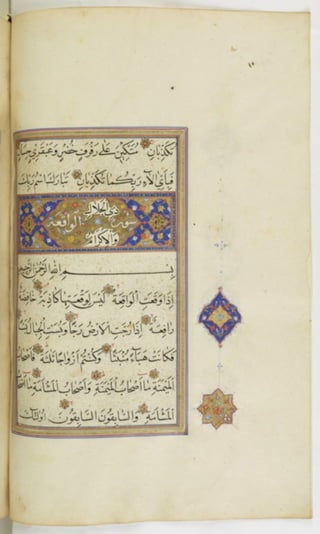 تكذبان متكئين على رفرف خضر وعبقري حسان
فبأي آلاء ربكما تكذبان تبارك اسم ربك
ذي الجلال
سورة الواقعة
والاكرام
بسم الله الرحمن الرحيم
اذا وقعت الواقعة ليس لوقعتها كاذبة خافضة
رافعة اذا رجت الارض رجا وبست الجبال بسا
فكانت هباء منبثا وكنتم ازواجا ثلثة فاصحاب
الميمنة ما اصحاب الميمنة واصحاب المشئمة ما اصحاب
المشئمة والسابقون السابقون اولئك